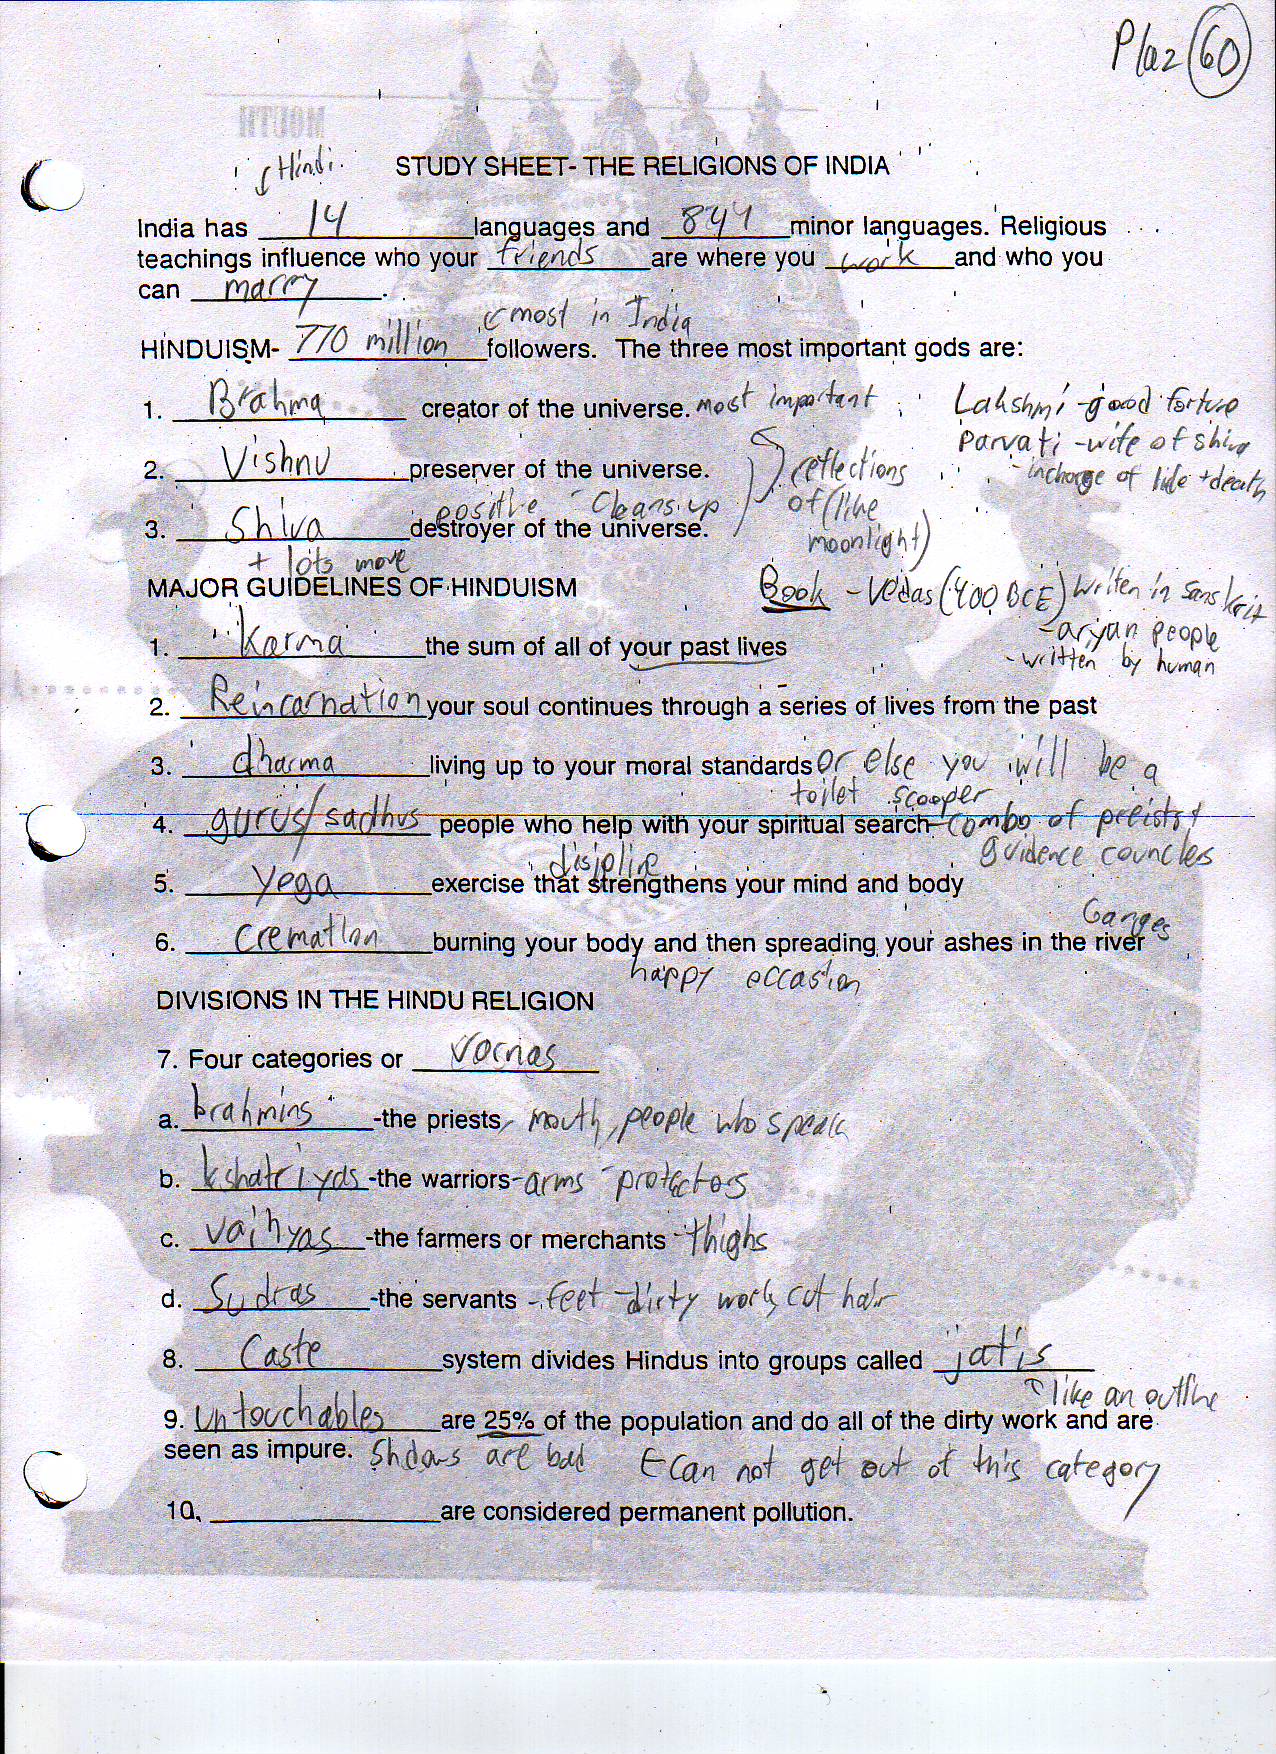 Plaz 60
HTUOM
Hindi
STUDY SHEET- THE RELIGIONS OF INDIA
India has 14 languages and 844 minor languages. Religious
teachings influence who your friends are where you work and who you
can marry.
most in India
HINDUISM- 770 million followers. The three most important gods are:
1. Brahma creator of the universe. most important
Lakshmi -good fortune
Parvati -wife of shiva
- incharge of life + death
2. Vishnu preserver of the universe.
reflections
of (like
moonlight)
positive - Cleans up
3. Shiva destroyer of the universe.
+ lots more
MAJOR GUIDELINES OF HINDUISM
Book - Vedas (400 BCE) written in Sanskrit
- aryan people
- written by human
1. Karma the sum of all of your past lives
2. Reincarnation your soul continues through a series of lives from the past
3. dharma living up to your moral standards or else you will be a
toilet scooper
4. gurus/sadhus people who help with your spiritual search- combo of preists +
guidence councles
disipline
5. Yega exercise that strengthens your mind and body
Ganges
6. Cremation burning your body and then spreading your ashes in the river
happy occasion
DIVISIONS IN THE HINDU RELIGION
7. Four categories or Varnas
a. brahmins -the priests, mouth, people who speak
b. kshatriyas -the warriors- arms - protectors
c. vaihyas -the farmers or merchants - thighs
d. Sudras -the servants - feet - dirty work, cut hair
8. Caste system divides Hindus into groups called jatis
like an outline
9. Untouchables are 25% of the population and do all of the dirty work and are
seen as impure. Shdows are bad can not get out of this category
10. are considered permanent pollution.